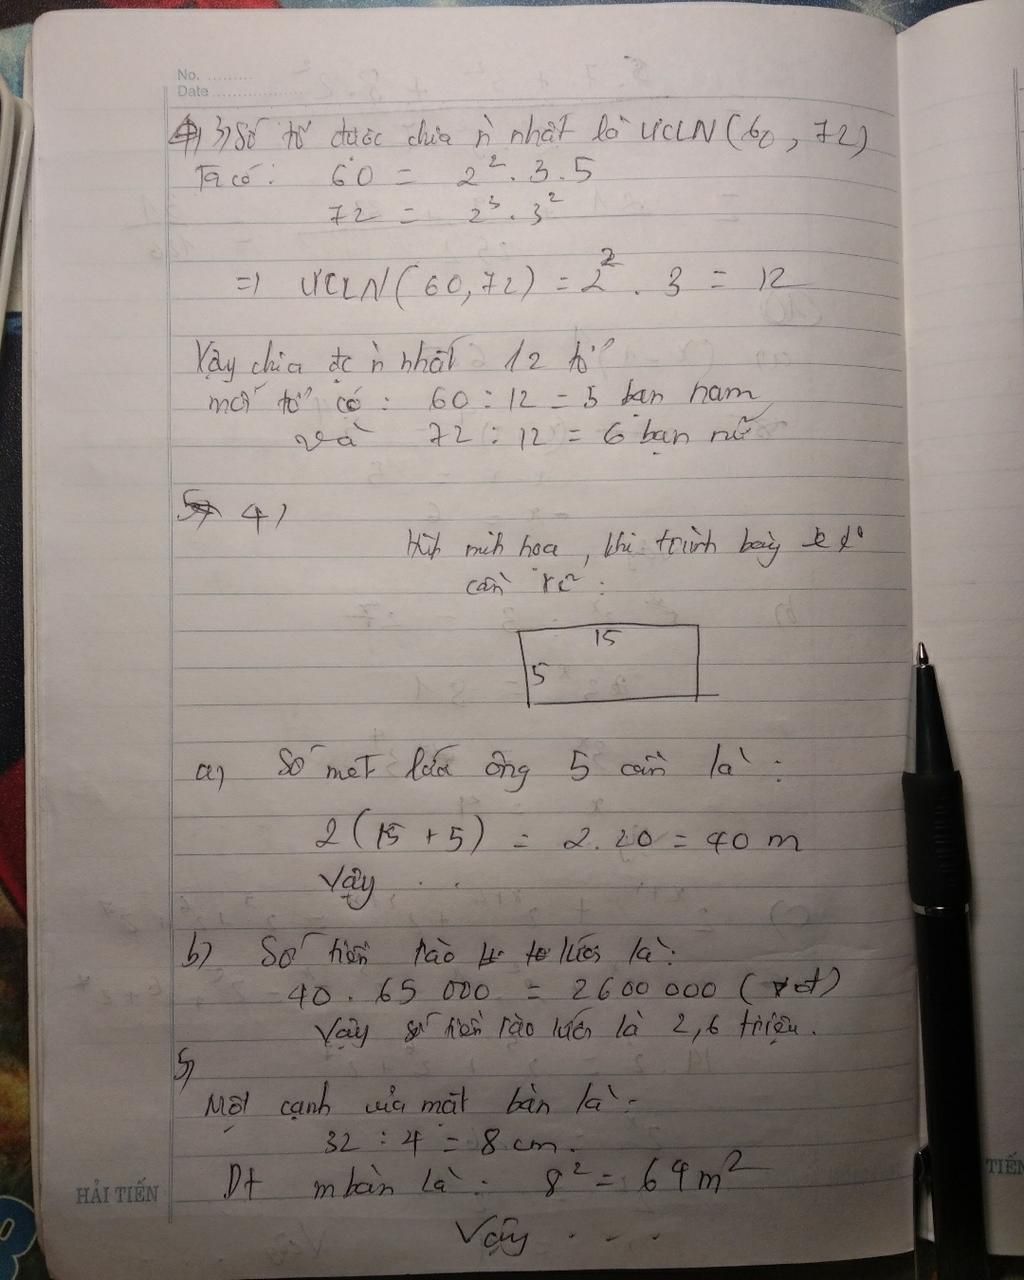 No. ..........
Date ....................
3) Số tổ được chia ǹ nhất là ƯCLN(60, 72)
Ta có: 60 = 2². 3 . 5
72 = 2³. 3²
=) ƯCLN(60,72) = 2² . 3 = 12
Vậy chia đc ǹ nhất 12 tổ
mỗi tổ có : 60 : 12 = 5 bạn nam
và 72 : 12 = 6 bạn nữ
4)
Hìh mih họa, khi trình bày
cần :
15
5
a) Số mét lưới ông 5 cần là :
2(15 + 5) = 2.20 = 40 m
Vậy . .
b) Số tiền rào lưới là:
40 . 65 000 = 2600 000 (
Vậy số tiền rào lưới là 2,6 triệu.
5)
Một cạnh của mặt bàn là :
32 : 4 = 8 cm.
Dt m bàn là : 8² = 64m²
Vậy . . .
HẢI TIẾN
TIẾN